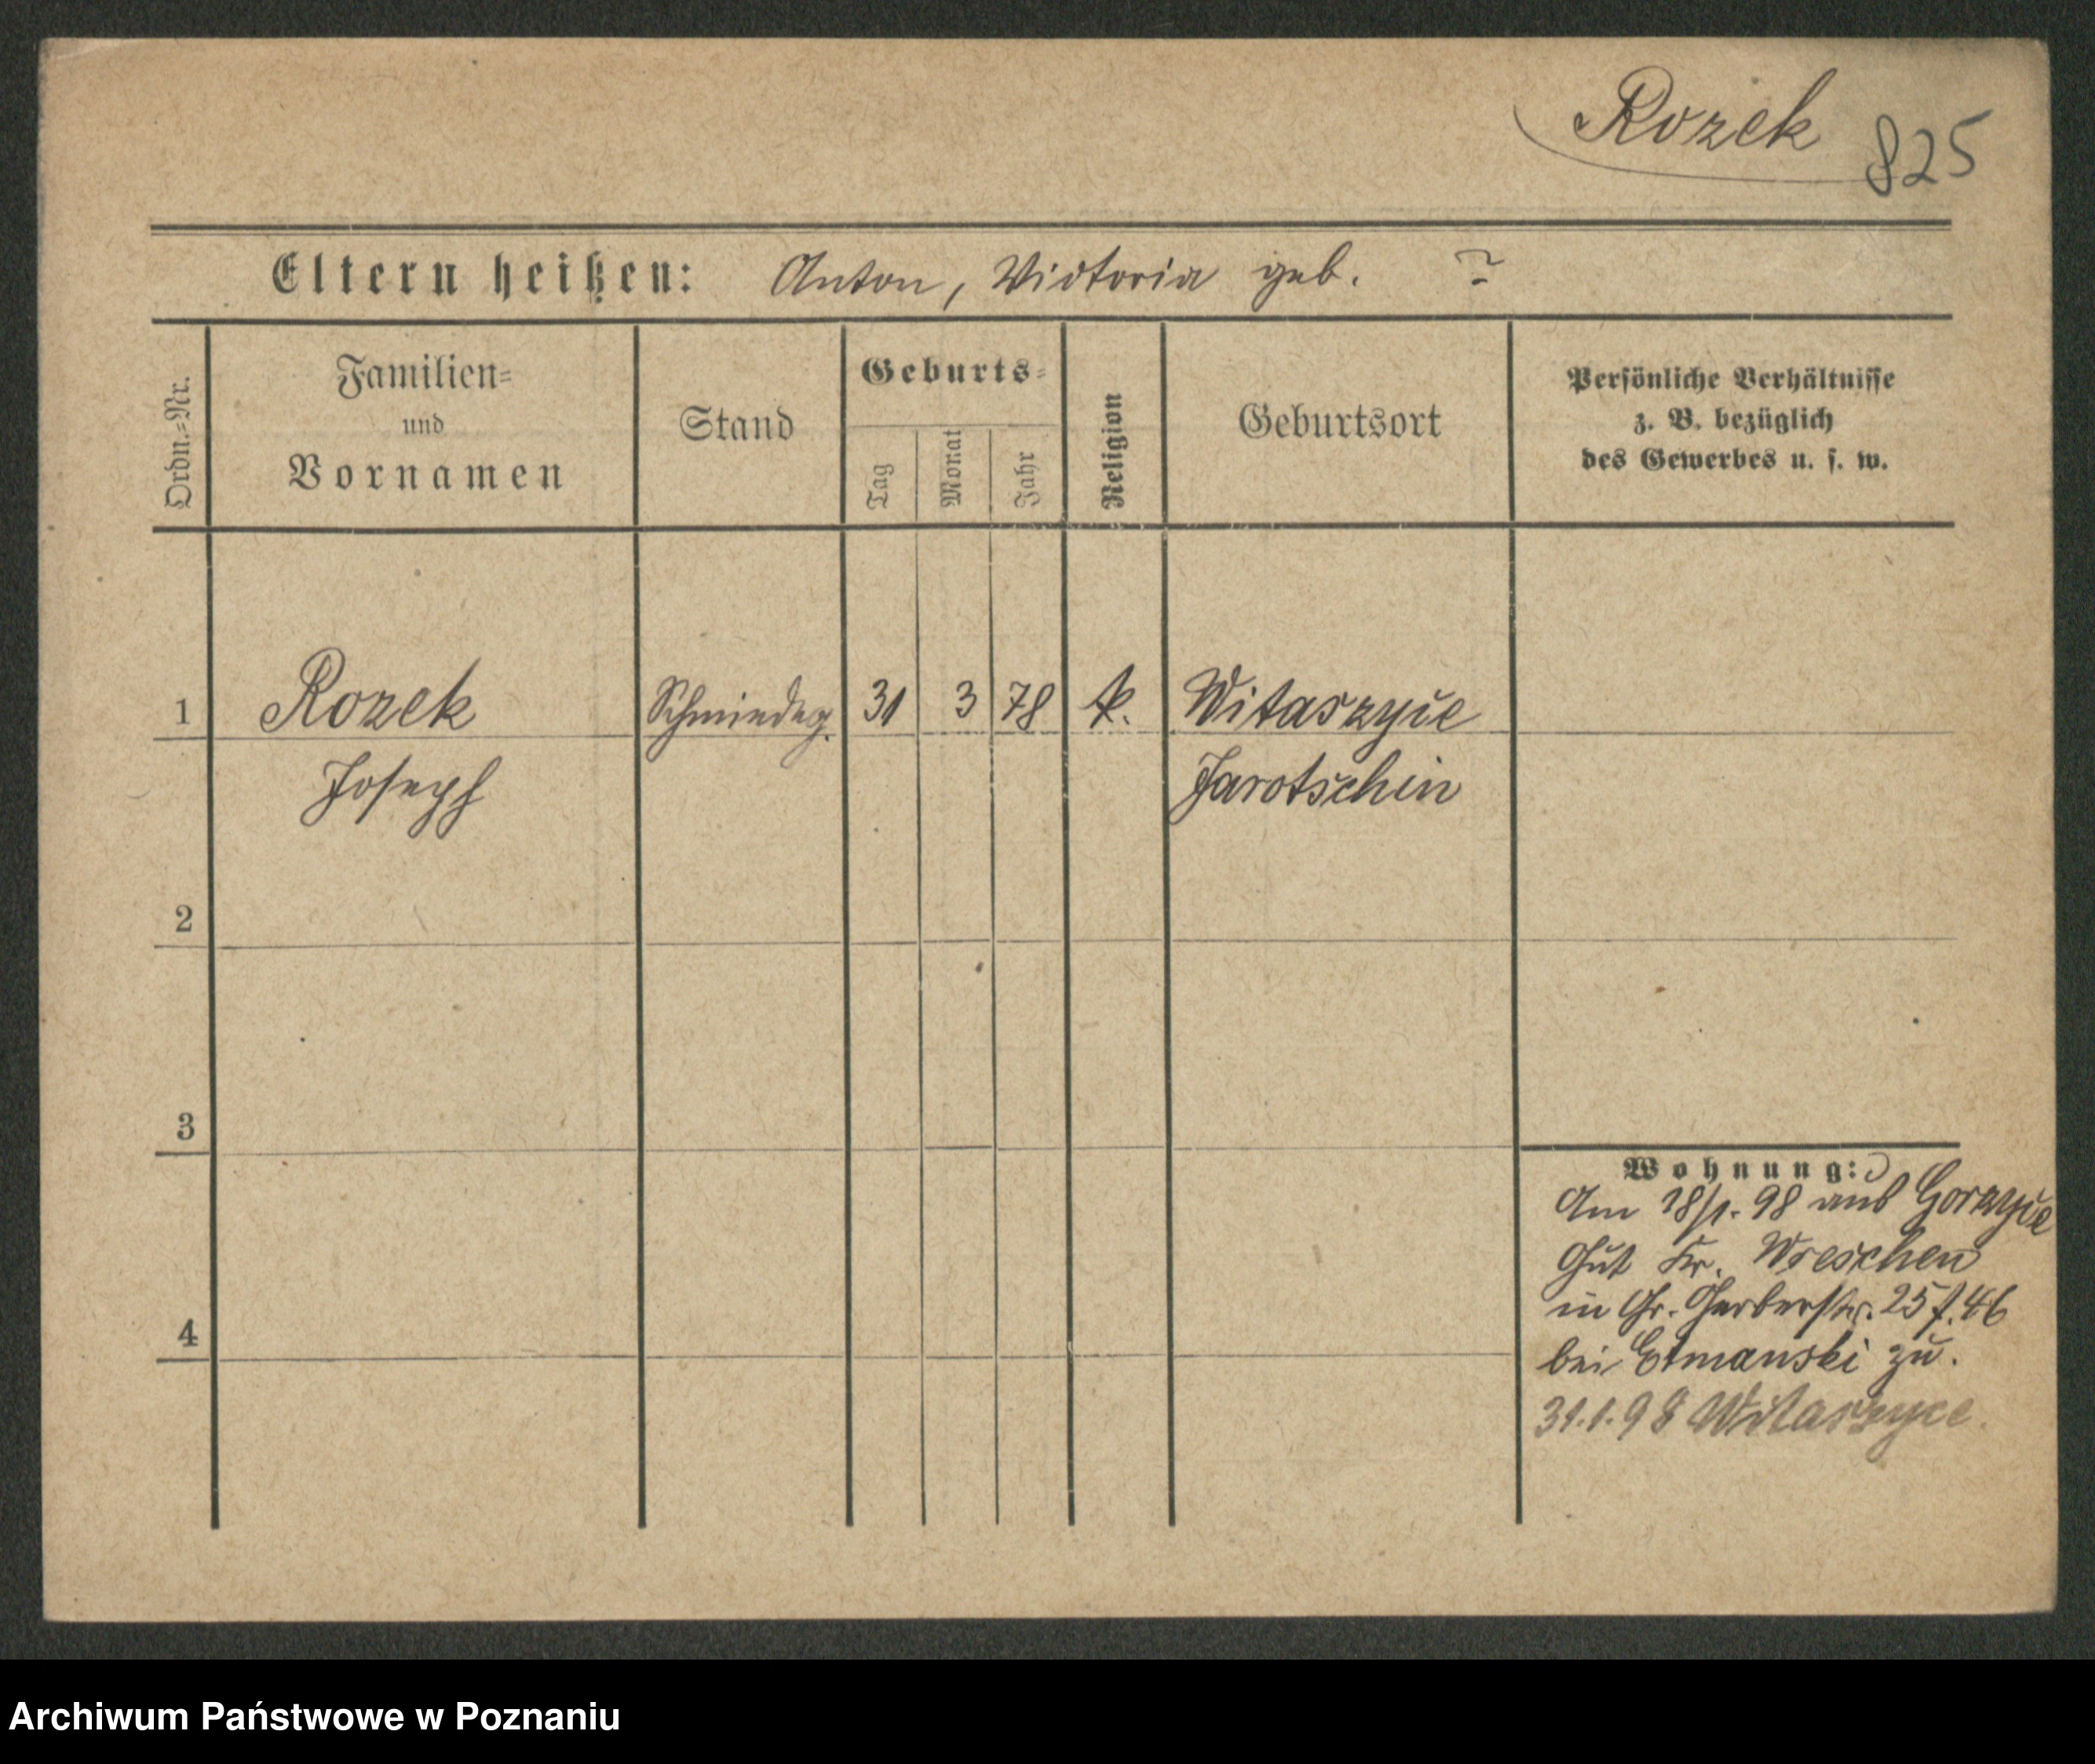 Rozek 825
Eltern heißen: Anton, Victoria geb. ?
Ordn.=Nr.
Familien=
und
Vornamen
Stand
Geburts=
Tag
Monat
Jahr
Religion
Geburtsort
Persönliche Verhältnisse
z. B. bezüglich
des Gewerbes u. s. w.
1 Rozek Schmiedeg. 31 3 78 k. Witaszyce
Joseph Jarotschin
2
3
4
Wohnung:
Am 18/1. 98 aus Gorzyce
Gut Kr. Wreschen
in Gr. Gerberstr. 25 f. 46
bei Etmanski zu.
31.1.98 Witaszyce.
Archiwum Państwowe w Poznaniu